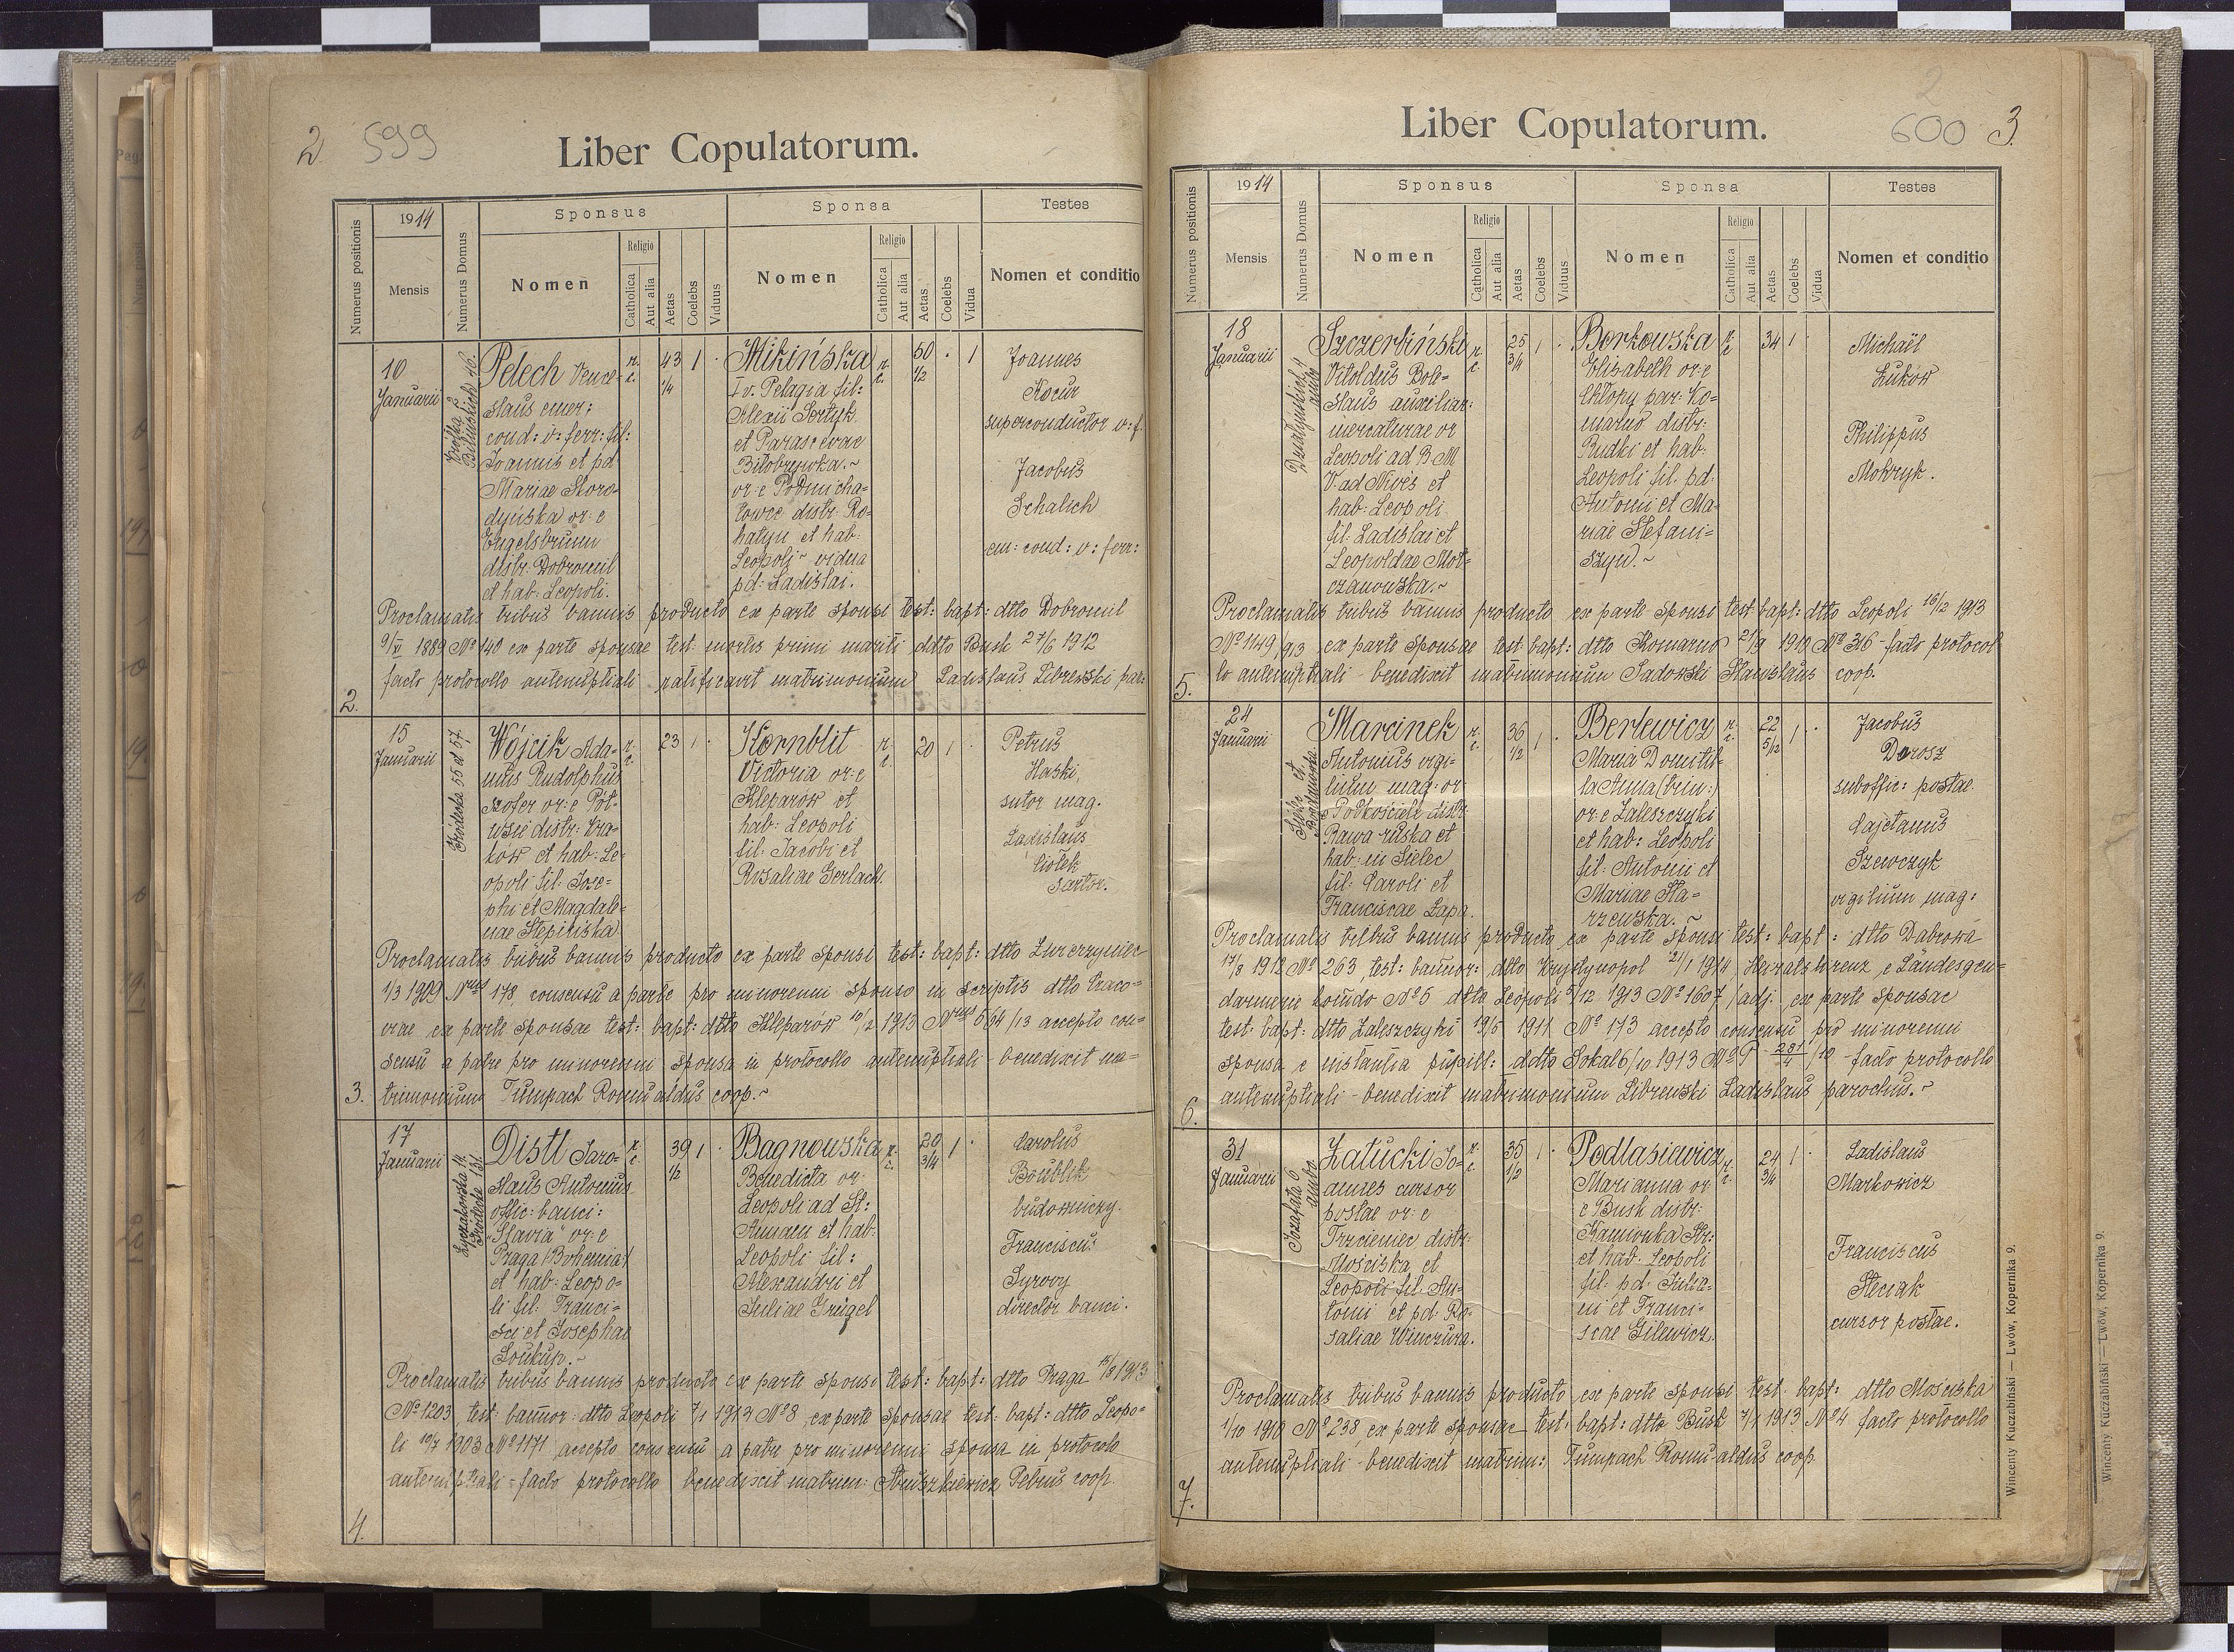 2. 599
Liber Copulatorum.
Numerus positionis
1914
Mensis
Numerus Domus
Sponsus
Nomen
Religio
Catholica
Aut alia
Aetas
Coelebs
Viduus
Sponsa
Nomen
Religio
Catholica
Aut alia
Aetas
Coelebs
Vidua
Testes
Nomen et conditio
2.
10
Januarii
Bilinskich 16.
Pelech Vence-
slaus emer:
cond: v: ferr: fil:
Joannis et pd
Mariae Horo-
dyńska or: e
Engelsbrunn
distr: Dobromil
et hab: Leopoli.
r. c.
43 1/4
1
Mikińska
I v. Pelagia fil:
Alexii Sertyk
et Parascevae
Biłobrewka.~
or: e Podmicha-
łowce distr: Ro-
hatyn et hab:
Leopoli~ vidua
pd: Ladislai.
r. c.
50 1/2
1
Joannes
Kocur
superconductor v: f.
Jacobus
Schalich
em: cond: v: ferr:
Proclamatis tribus bannis producto ex parte sponsi test: bapt: dtto Dobromil
9/V 1889 No 140 ex parte sponsae test: mortis primi mariti ddto Busk 27/6 1912
facto protocollo antenuptiali ratificavit matrimonium Ladislaus Librewski par.
3.
15
Januarii
Gródecka 55 et 57
Wójcik Ada-
mus Rudolphus
szofer or: e Pół-
wsie distr: Kra-
ków et hab: Le-
opoli fil: Jose-
phi et Magdale-
nae Stępińska
r. c.
23
1
Kornblit
Victoria or: e
Kleparów et
hab: Leopoli
fil: Jacobi et
Rosaliae Gerlach.
r. c.
20
1
Petrus
Haski,
sutor mag.
Ladislaus
Ciołek
sartor.
Proclamatis tribus bannis producto ex parte sponsi test: bapt: dtto Zwierzyniec
1/3 1909 Nrus 178, consensu a parte pro minorenni sponso in scriptis dtto Craco-
viae ex parte sponsae test: bapt: dtto Kleparów 10/2 1913 Nrus 564/13 accepto con-
sensu a patre pro minorenni sponsa in protocollo antenuptiali - benedixit ma-
trimonium Tumpach Romualdus coop.~
4.
17
Januarii
Łyczakowska 14.
Gródecka 131.
Distl Jaro-
slaus Antonius
offic: banci:
"Slavia" or: e
Praga (Bohemia)
et hab: Leopo-
li fil: Franci-
sci et Josephae
Soukup.~
r. c.
39 1/2
1
Bagnowska
Benedicta or:
Leopoli ad St:
Annam et hab:
Leopoli fil:
Alexandri et
Juliae Grügel
r. c.
20 3/4
1
Carolus
Boublik
budowniczy.
Franciscus
Syrovy
director banci.
Proclamatis tribus bannis producto ex parte sponsi test: bapt: dtto Praga 15/9 1913
No 1203, test: bannor: dtto Leopoli 7/1 1913 No 8, ex parte sponsae test: bapt: dtto Leopo-
li 10/7 1903 No 1171 accepto consensu a patre pro minorenni sponsa in protocolo
antenuptiali - facto protocollo benedixit matrim: Struszkiewicz Petrus coop.
2
600 3.
Liber Copulatorum.
Numerus positionis
1914
Mensis
Numerus Domus
Sponsus
Nomen
Religio
Catholica
Aut alia
Aetas
Coelebs
Viduus
Sponsa
Nomen
Religio
Catholica
Aut alia
Aetas
Coelebs
Vidua
Testes
Nomen et conditio
5.
18
Januarii
Szczerbiński
Vitoldus Bole-
slaus auxiliar:
mercaturae or
Leopoli ad B M
V. ad Nives et
hab: Leopoli
fil: Ladislai et
Leopoldae Moł-
czanowska.~
r. c.
25 3/4
1
Borkowska
Elisabeth or: e
Chłopy par: Ko-
marno distr:
Rudki et hab:
Leopoli fil. pd:
Antonii et Ma-
riae Stefani-
szyn.~
r. c.
34
1
Michaël
Łuków
Philippus
Mokryk.
Proclamatis tribus bannis producto ex parte sponsi test: bapt: dtto Leopoli 16/12 1913
No 1149/913 ex parte sponsae test: bapt: dtto Komarno 21/9 1910 No 316 - facto protocol-
lo antenuptiali - benedixit matrimonium Sadowski Stanislaus coop.
6.
24
Januarii
Sielec et
Bogdanówka
Marcinek
Antonius vigi-
lium mag: or
e Podkościele distr:
Rawa ruska et
hab: in Sielec
fil: Caroli et
Franciscae Łapa.
r. c.
36 1/2
1
Berlewicz
Maria Domitil-
la Anna (trin:)
or: e Zaleszczyki
et hab: Leopoli
fil: Antonii et
Mariae Sta-
rzewska.~
r. c.
22 5/12
1
Jacobus
Dorosz
suboffic: postae.
Cajetanus
Szewczyk
vigilium mag:
Proclamatis tribus bannis producto ex parte sponsi test: bapt: dtto Dąbrowa
17/8 1912 No 263, test: bannor: dtto Krystynopol 21/1 1914 Heiratslizenz e Landesgen-
darmerie komdo No 5 dtto Leopoli 5/12 1913 No 1607/adj: ex parte sponsae
test: bapt: dtto Zaleszczyki 19/5 1911 No 173 accepto consensu pro minorenni
sponsa e instantia pupill: ddto Sokal 6/10 1913 No P 281/4/10 - facto protocollo
antenuptiali - benedixit matrimonium Librewski Ladislaus parochus.~
7.
31
Januarii
Jozafata 6
ambo
Załucki Jo-
annes cursor
postae or: e
Trzcieniec distr:
Mościska et
Leopoli fil. An-
tonii et pd: Ro-
saliae Winczura.
r. c.
35 1/2
1
Podlasiewicz
Marianna or
e Busk distr:
Kamionka Str:
et hab: Leopoli
fil: pd: Julia-
ni et Franci-
scae Gilewicz.
r. c.
24 3/4
1
Ladislaus
Markowicz
Franciscus
Steciak
cursor postae.
Proclamatis tribus bannis producto ex parte sponsi test: bapt: dtto Mościska
1/10 1910 No 238, ex parte sponsae test: bapt: dtto Busk 7/1 1913 No 4 facto protocollo
antenuptiali - benedixit matrim: Tumpach Romualdus coop.
Wincenty Kuczabiński — Lwów, Kopernika 9.
Wincenty Kuczabiński — Lwów, Kopernika 9.